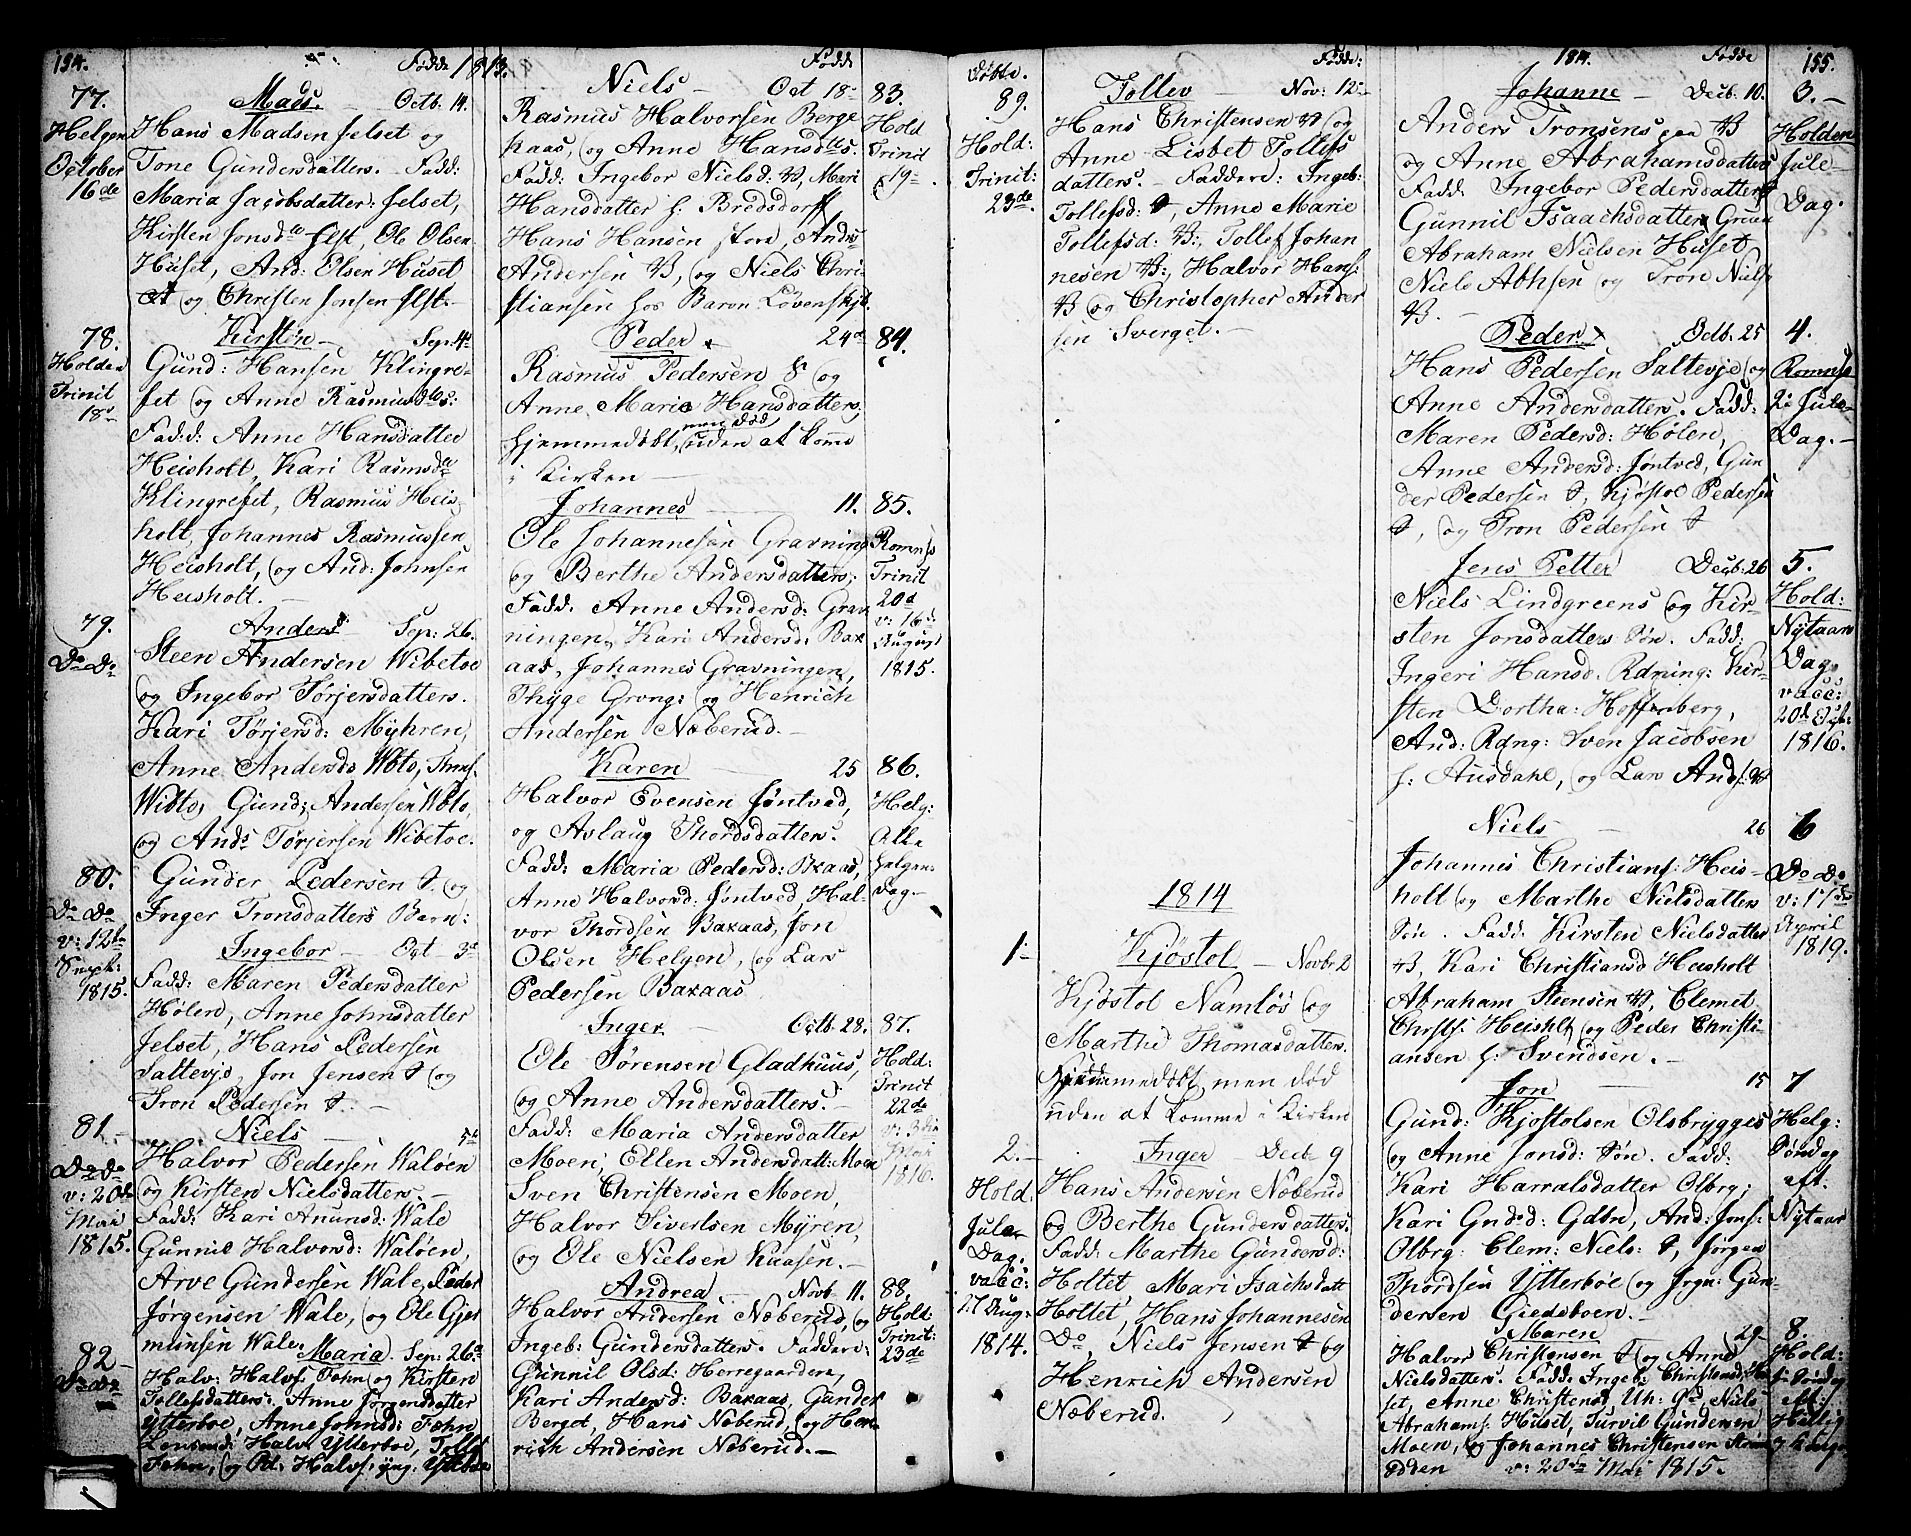 154.
Fødde 1813.
77.
Helgen
October
16de
Mads. — Octb. 14.
Hans Madsen Jelset og
Tone Gundersdatters. Fadd:
Maria Jacobsdatter: Jelset,
Kirsten Jonsda Jlst, Ole Olsen
Huset, And: Olsen Huset
og Christen Jonsen Jlst. —
78.
Holden
Trinit
18de
Kirstine — Sep: 4
Gund: Hansen Klingre-
set og Anne Rasmusdtrs:
Fadd: Anne Hansdatter
Heisholt, Kari Rasmsda
Klingreset, Rasmus Heis-
holt, Johannes Rasmussen
Heisholt, og And: Johnsen
Heisholt. —
79.
Do Do
Anders — Sep: 26.
Steen Andersen Wibetoe
og Ingebor Tørjersdatters.
Kari Tørjersd: Myhren,
Anne Andersdr Wbto,
Wibto, Gund: Andersen Wbto,
og Ands Tørjersen Wibetoe.
80.
Do Do
v: 12te
Septb:
1815.
Gunder Pedersen og
Inger Tronsdatters Barn:
Ingebor — Oct 3
Fadd: Maren Pedersdatter
Hølen, Anne Johnsdatter
Jelset, Hans Pedersen
Saltevje, Jon Jensen og
Tron Pedersen —
81. —
Do Do
v: 20de
Mai
1815.
Niels — 5te
Halvor Pedersen Waløen
og Kirsten Nielsdatters. —
Fadd: Kari Anunsd: Wale
Gunnil Halvorsd: Waløen,
Arve Gundersen Wale, Peder
Jørgensen Wale, og Ole Gjer
munsen Wale.
82 —
Do Do
Maria. Sep: 26
Halv: Halvs: Fohn og Kirsten
Tollefsdatters. Anne Jørgensdatter
Ytterboe, Anne Johnsd: Fohn
Halv: Ytterboe, Tollef
Fohn, og Pd: Halvs: yng:
Fødd
Niels — Oct 18
Rasmus Halvorsen Berge
kaas, og Anne Hansdtrs.
Fadd: Ingebor Nielsd: Mari
Hansdatter h: Bredsdorff
Hans Hansen store, Anders
Andersen og Niels Chri-
stiansen hos Baron Løvenskjd.
83.
Hold
Trinit
19
Peder 24de
Rasmus Pedersen og
Anne Marie Hansdatters,
hjemmedøbt, men død uden at kome
i Kirken —
84.
Johannes — 11.
Ole Johannesen Gravning
og Berthe Andersdatters,
Fadd: Anne Andersd: Grav
ningen, Kari Andersd: Bax
aas, Johannes Gravningen,
Thyge Grvng: og Henrich
Andersen Næberud. —
85.
Romnes
Trinit
20d
v: 16
August
1815.
Karen — 25
Halvor Evensen Jøntved,
og Aslaug Thordsdatters.
Fadd: Maria Pedersd: Baxaas,
Anne Halvorsd: Jøntved, Hal-
vor Thordsen Baxaas, Jon
Olsen Helgen, og Lars
Pedersen Baxaas
86.
Helg:
Alle
helgen
Dag. —
Inger — Octb. 28.
Ole Sørensen Gladhuus,
og Anne Andersdatters. —
Fadd: Maria Andersdatter
Moen, Ellen Andersdatt: Moen
Sven Christensen Moen,
Halvor Sivertsen Myren,
og Ole Nielsen Kaasen. —
87.
Hold:
Trinit
22de
1816.
Andrea — Novb 11.
Halvor Andersen Næberud, og
Ingeb: Gundersdatters. Faddere:
Gunnil Olsd: Herregaarden,
Kari Andersd: Baxaas, Gunder
Bergot, Hans Næberud, og Hen-
rich Andersen Næberud. —
88.
Hold
Trinit:
23de
døbte.
Fødde:
89.
Hold:
Trinit:
23de
Tollev — Nov: 12
Hans Christensen og
Anne Lisbet Tollefs
datters. — Faddere: Ingeb:
Tollefsd: Anne Marie
Tollefsd: Tollef Johan
nesen Halvor Hans:
og Christopher Ander
sen Sverget. —
1814
1
Kjøstol — Novbr 2
Kjøstol Namløs og
Marthe Thomasdatters.
hjemmedøbt, men død
uden at komme i Kirken
2. —
Hold:
Jule
Dag.
vacc:
27 Aug:
1814.
Inger — Decb 9
Hans Andersen Næberud
og Berthe Gundersdatters.
Fadd: Marthe Gundersd:
Holtet, Mari Isachsdatt
Holtet, Hans Johannesen
Do, Niels Jensen og
Henrich Andersen
Næberud.
1814. Fødde 155.
Johanne — Decb. 10.
Anders Tronsens paa
og Anne Abrahamsdatters
Fadd: Ingebor Pedersdatter
Gunnil Isaachsdatter
Abraham Nielsen Huset
Niels Abhsen og Tron Niels
3. —
Holden
Jule-
Dag.
Peder Octb. 25
Hans Pedersen Saltevje og
Anne Andersdatters. Fadd:
Maren Pedersd: Hølen,
Anne Andersd: Jøntved, Gun
der Pedersen Kjøstol Pedersen
og Tron Pedersen
4.
Romnes
2. Jule-
Dag. —
Jens Petter Decb: 26
Niels Lindgreens og Kir-
sten Jonsdatters Søn. Fadd:
Ingeri Hansd. Rdning: Kir-
sten Dortha: Hoffenberg,
And: Rdng: Sven Jacobsen
h: Ausdahl, og Lars Ands:
5.
Hold:
Nytaars
Dag.
vacc:
20de
1816.
Niels — 26
Johannes Christians: Heis-
holt og Marthe Nielsdatters
Søn. Fadd: Kirsten Nielsdatter
Kari Christiansd Heisholt
Abraham Steensen Clemet
Chrsts: Heishlt, og Peder Christi-
ansen h: Svendsen. —
6
Do Do
v: 17de
April
1819.
Jon — 15
Gund: Kjøstolsen Olsbrygges
og Anne Jonsd: Søn. Fadd:
Kari Harralsdatter Olbrg:
Kari Gndsd: Gdbn, And: Jons:
Olbrg: Clem: Niels: Jørgen
Thordsen Ytterboe og Jrgn: Gun-
dersen Giedeboen. —
7
Helg:
Søndag
eft.
Nytaar
Maren 29
Halvor Christensen og Anne
Nielsdatters. Fadd: Ingeb: Christensd:
set, Anne Christensd, Niels
Abrahams: Huset, Turvil Gundersen
Moen, og Johannes Christensen
ødden v: 20de Mai 1815.
8.
Hold: